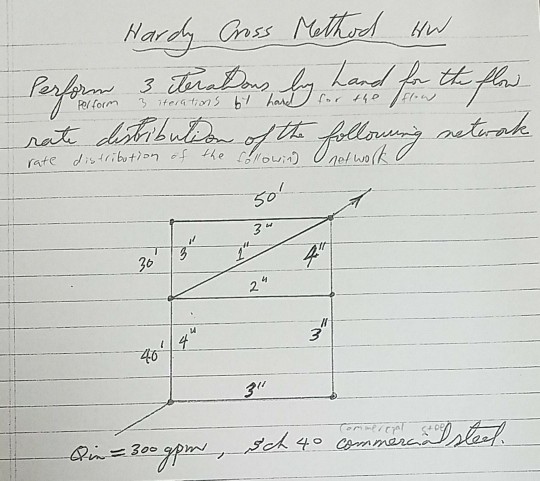 Hardy Cross Method HW
Perform 3 iterations by hand for the flow
Perform 3 iterations by hand for the flow
rate distribution of the following network
rate distribution of the following network
50'
3"
30'
3"
1"
4"
2"
40'
4"
3"
3"
Qin = 300 gpm, Sch 40 commercial steel.